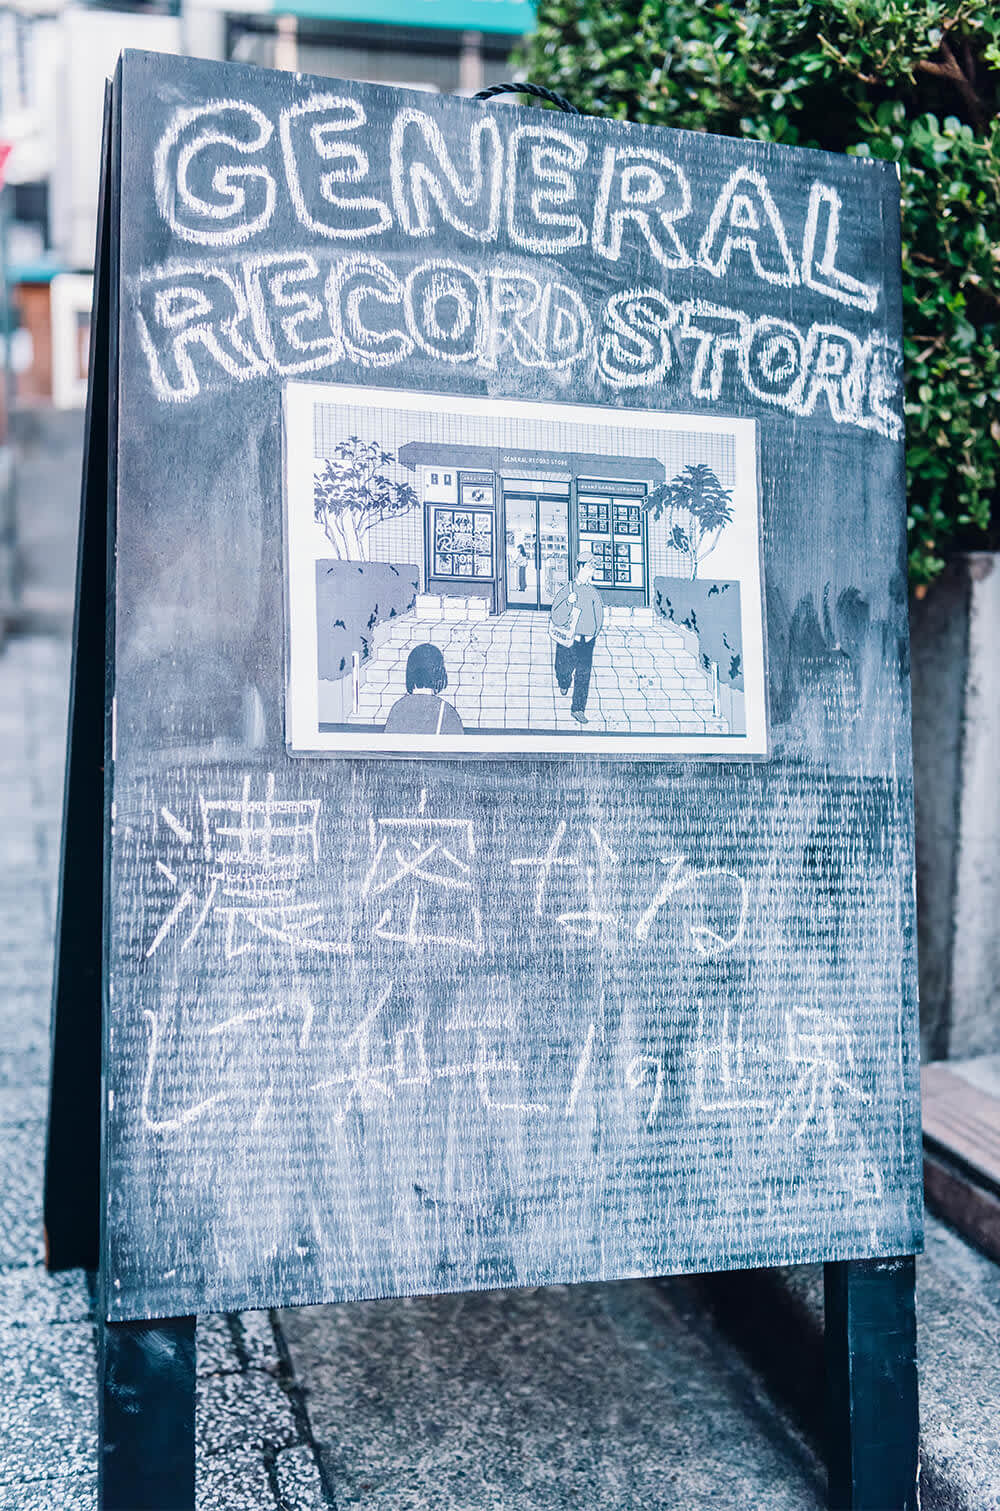 GENERAL
RECORD STORE
GENERAL RECORD STORE
GENERAL
RECORD
STORE
濃密なる
レコードの世界